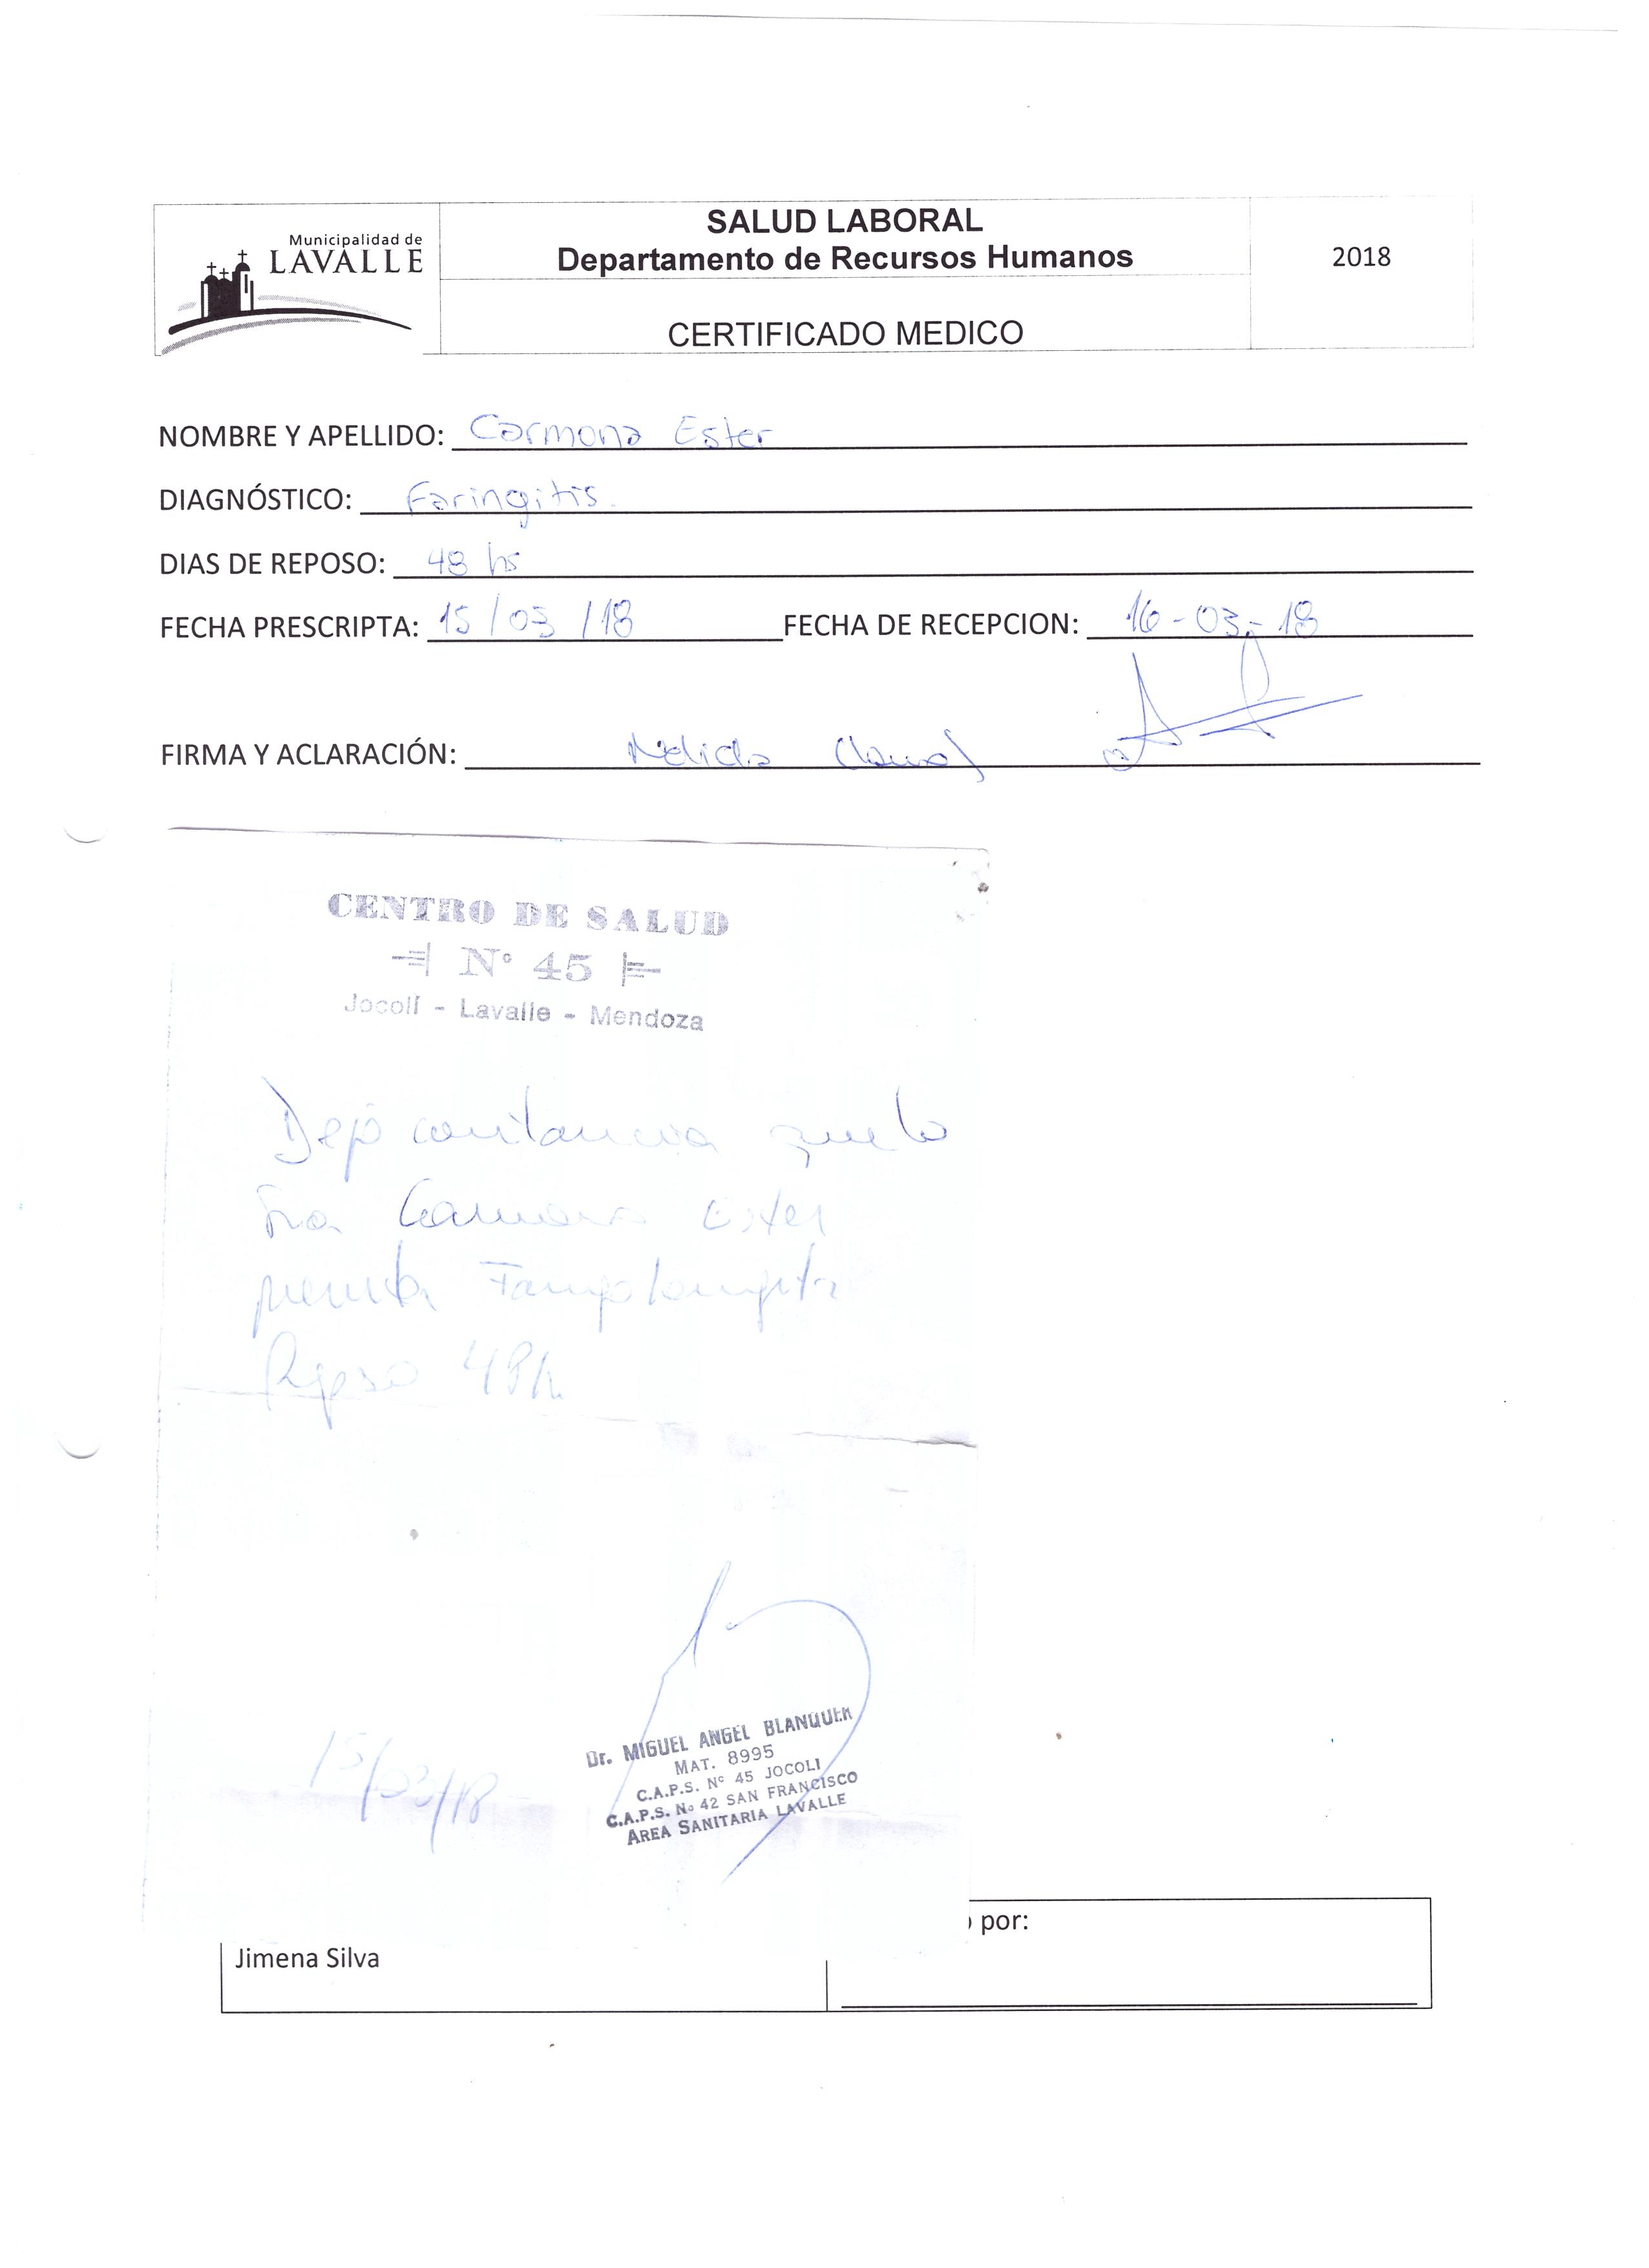 Municipalidad de
LAVALLE
SALUD LABORAL
Departamento de Recursos Humanos
2018
CERTIFICADO MEDICO
NOMBRE Y APELLIDO: Carmona Ester
DIAGNÓSTICO: Faringitis.
DIAS DE REPOSO: 48 hs
FECHA PRESCRIPTA: 15/03/18 FECHA DE RECEPCION: 16-03-18
FIRMA Y ACLARACIÓN:
CENTRO DE SALUD
Nº 45
Jocolí - Lavalle - Mendoza
Dejo constancia que la
Sra Carmona Ester
presenta
Reposo 48h
15/03/18
Dr. MIGUEL ANGEL BLANQUER
MAT. 8995
C.A.P.S. Nº 45 JOCOLI
C.A.P.S. Nº 42 SAN FRANCISCO
AREA SANITARIA LAVALLE
por:
Jimena Silva